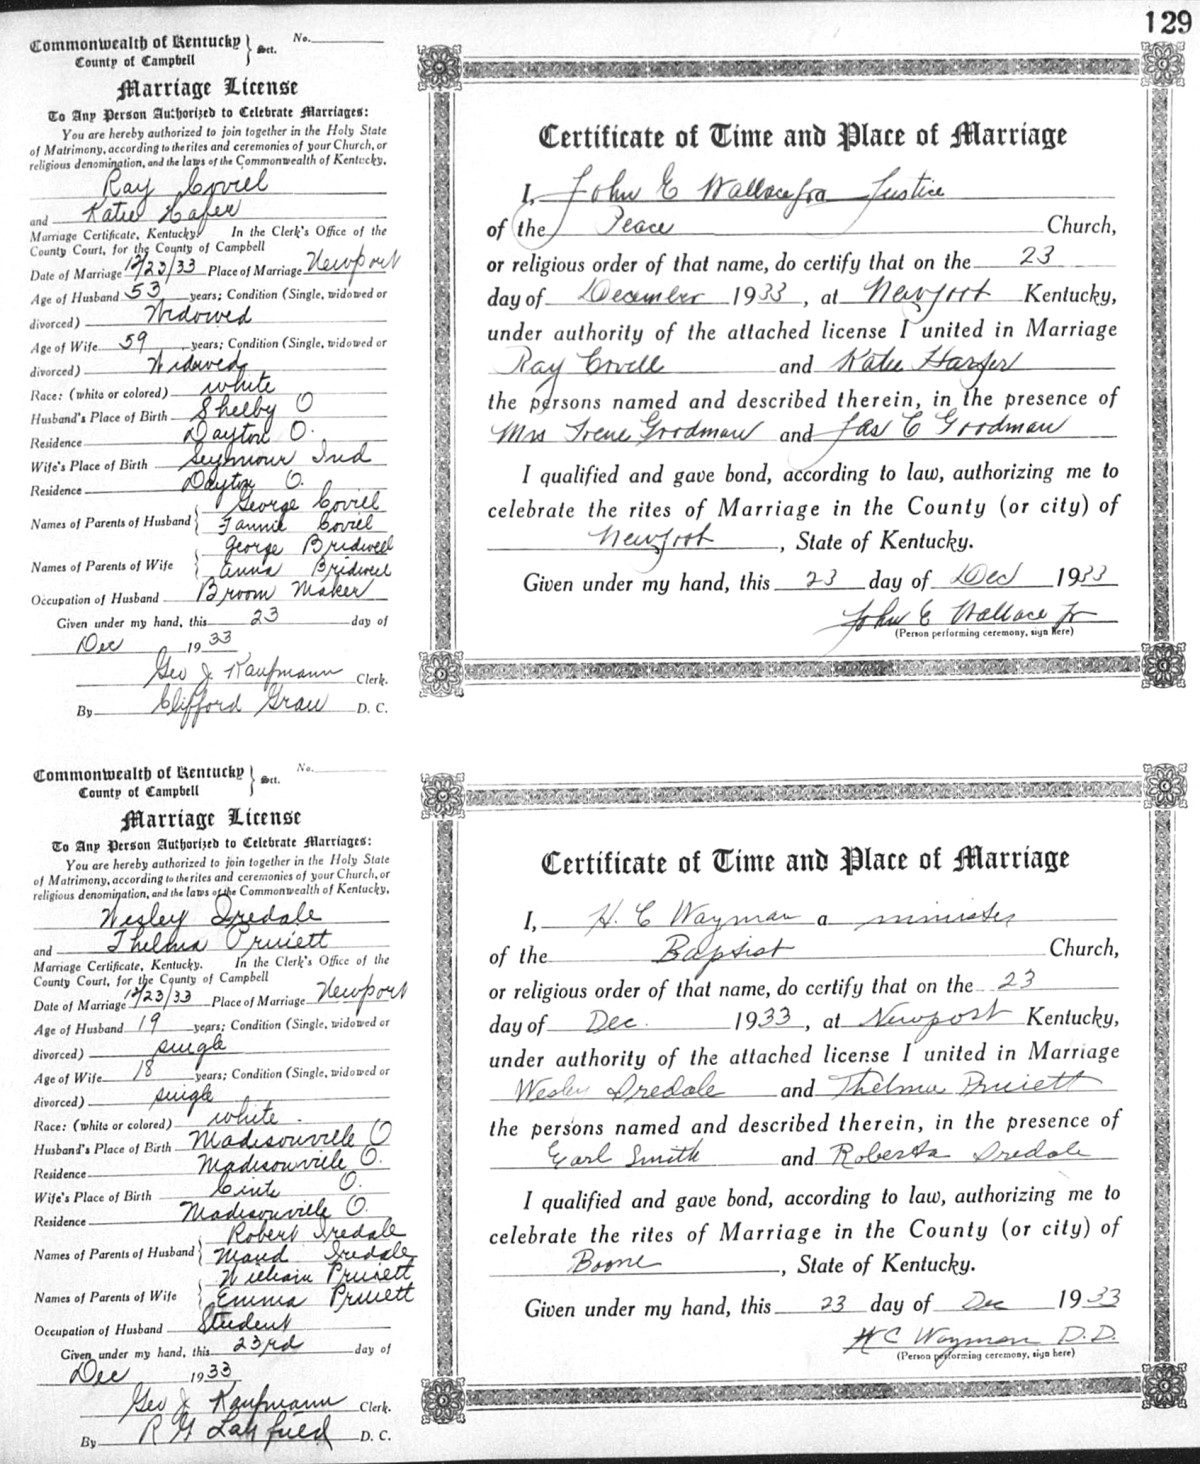 129
Commonwealth of Kentucky } Sct. No.
County of Campbell
Marriage License
To Any Person Authorized to Celebrate Marriages:
You are hereby authorized to join together in the Holy State
of Matrimony, according to the rites and ceremonies of your Church, or
religious denomination, and the laws of the Commonwealth of Kentucky,
Ray Covill
and Katie Hafer
Marriage Certificate, Kentucky. In the Clerk's Office of the
County Court, for the County of Campbell
Date of Marriage 12/23/33 Place of Marriage Newport
Age of Husband 53 years; Condition (Single, widowed or
divorced) Widowed
Age of Wife 59 years; Condition (Single, widowed or
divorced) Widowed
Race: (white or colored) white
Husband's Place of Birth Shelby O
Residence Dayton O.
Wife's Place of Birth Seymour Ind
Residence Dayton O.
George Covill
Names of Parents of Husband { Fannie Covill
George Bridwell
Names of Parents of Wife { Anna Bridwell
Occupation of Husband Broom Maker
Given under my hand, this 23 day of
Dec 1933
Geo J. Kaufmann Clerk.
By Clifford Grau D. C.
Certificate of Time and Place of Marriage
I, John E Wallace Jr a Justice
of the Peace Church,
or religious order of that name, do certify that on the 23
day of December 1933, at Newport Kentucky,
under authority of the attached license I united in Marriage
Ray Covell and Katie Harfer
the persons named and described therein, in the presence of
Mrs Irene Goodman and Jas C Goodman
I qualified and gave bond, according to law, authorizing me to
celebrate the rites of Marriage in the County (or city) of
Newport, State of Kentucky.
Given under my hand, this 23 day of Dec 1933
John E Wallace Jr
(Person performing ceremony, sign here)
Commonwealth of Kentucky } Sct. No.
County of Campbell
Marriage License
To Any Person Authorized to Celebrate Marriages:
You are hereby authorized to join together in the Holy State
of Matrimony, according to the rites and ceremonies of your Church, or
religious denomination, and the laws of the Commonwealth of Kentucky,
Wesley Iredale
and Thelma Pruiett
Marriage Certificate, Kentucky. In the Clerk's Office of the
County Court, for the County of Campbell
Date of Marriage 12/23/33 Place of Marriage Newport
Age of Husband 19 years; Condition (Single, widowed or
divorced) single
Age of Wife 18 years; Condition (Single, widowed or
divorced) single
Race: (white or colored) white
Husband's Place of Birth Madisonville O
Residence Madisonville O.
Wife's Place of Birth Cinti O.
Residence Madisonville O.
Robert Iredale
Names of Parents of Husband { Maud Iredale
William Pruiett
Names of Parents of Wife { Emma Pruiett
Occupation of Husband Student
Given under my hand, this 23rd day of
Dec 1933
Geo J. Kaufmann Clerk.
By R G D. C.
Certificate of Time and Place of Marriage
I, H. C Wayman a minister
of the Baptist Church,
or religious order of that name, do certify that on the 23
day of Dec. 1933, at Newport Kentucky,
under authority of the attached license I united in Marriage
Wesley Iredale and Thelma Pruiett
the persons named and described therein, in the presence of
Earl Smith and Roberta Iredale
I qualified and gave bond, according to law, authorizing me to
celebrate the rites of Marriage in the County (or city) of
Boone, State of Kentucky.
Given under my hand, this 23 day of Dec 1933
H C Wayman D.D.
(Person performing ceremony, sign here)